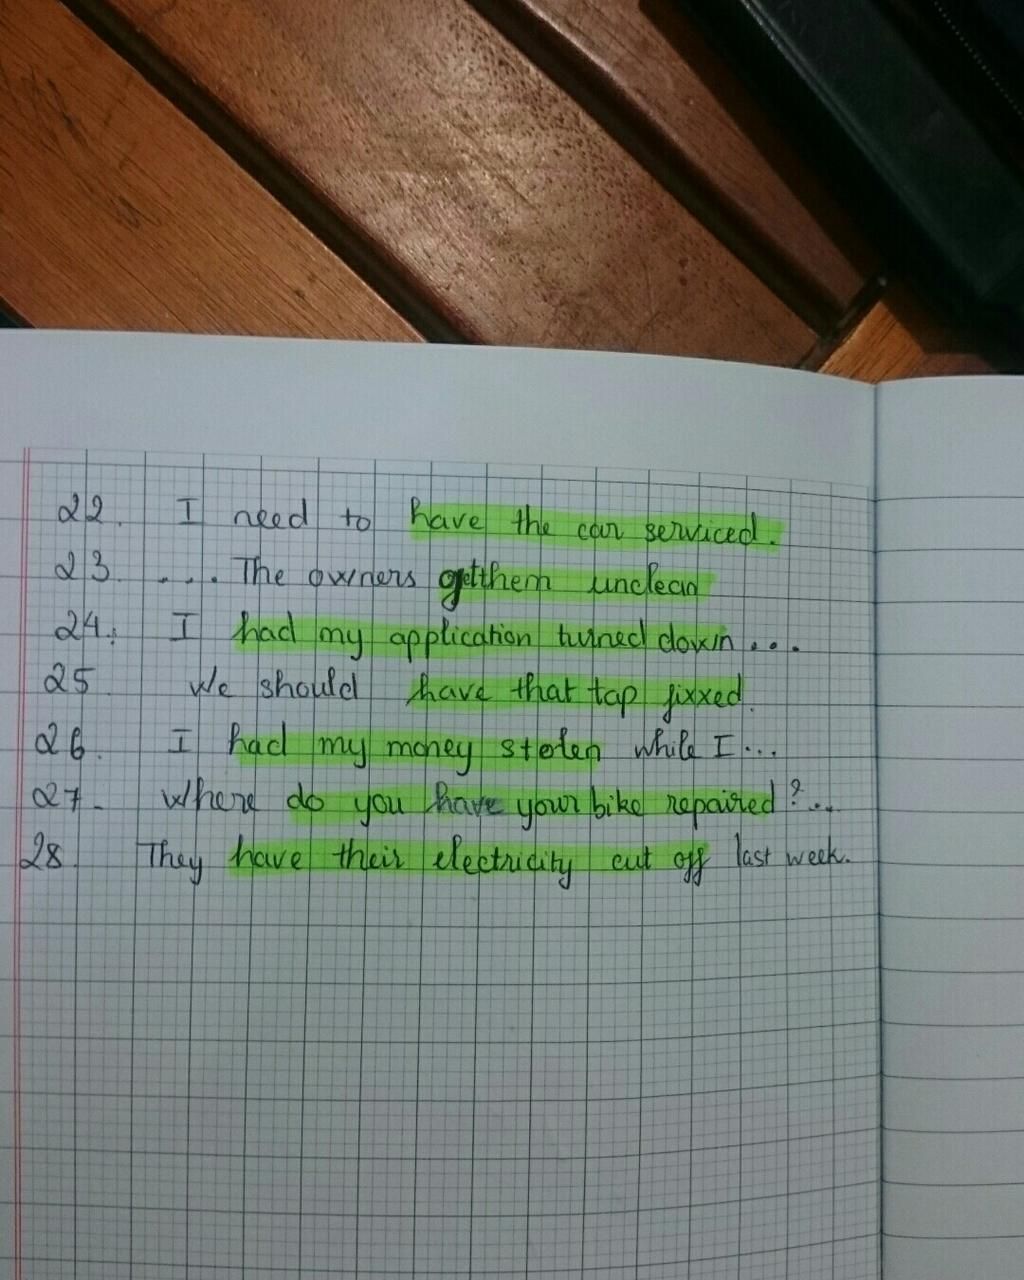 22. I need to have the car serviced.
23. ... The owners get them unclean
24. I had my application turned down ...
25 We should have that tap fixxed.
26. I had my money stolen while I...
27- Where do you have your bike repaired?...
28. They have their electricity cut off last week.